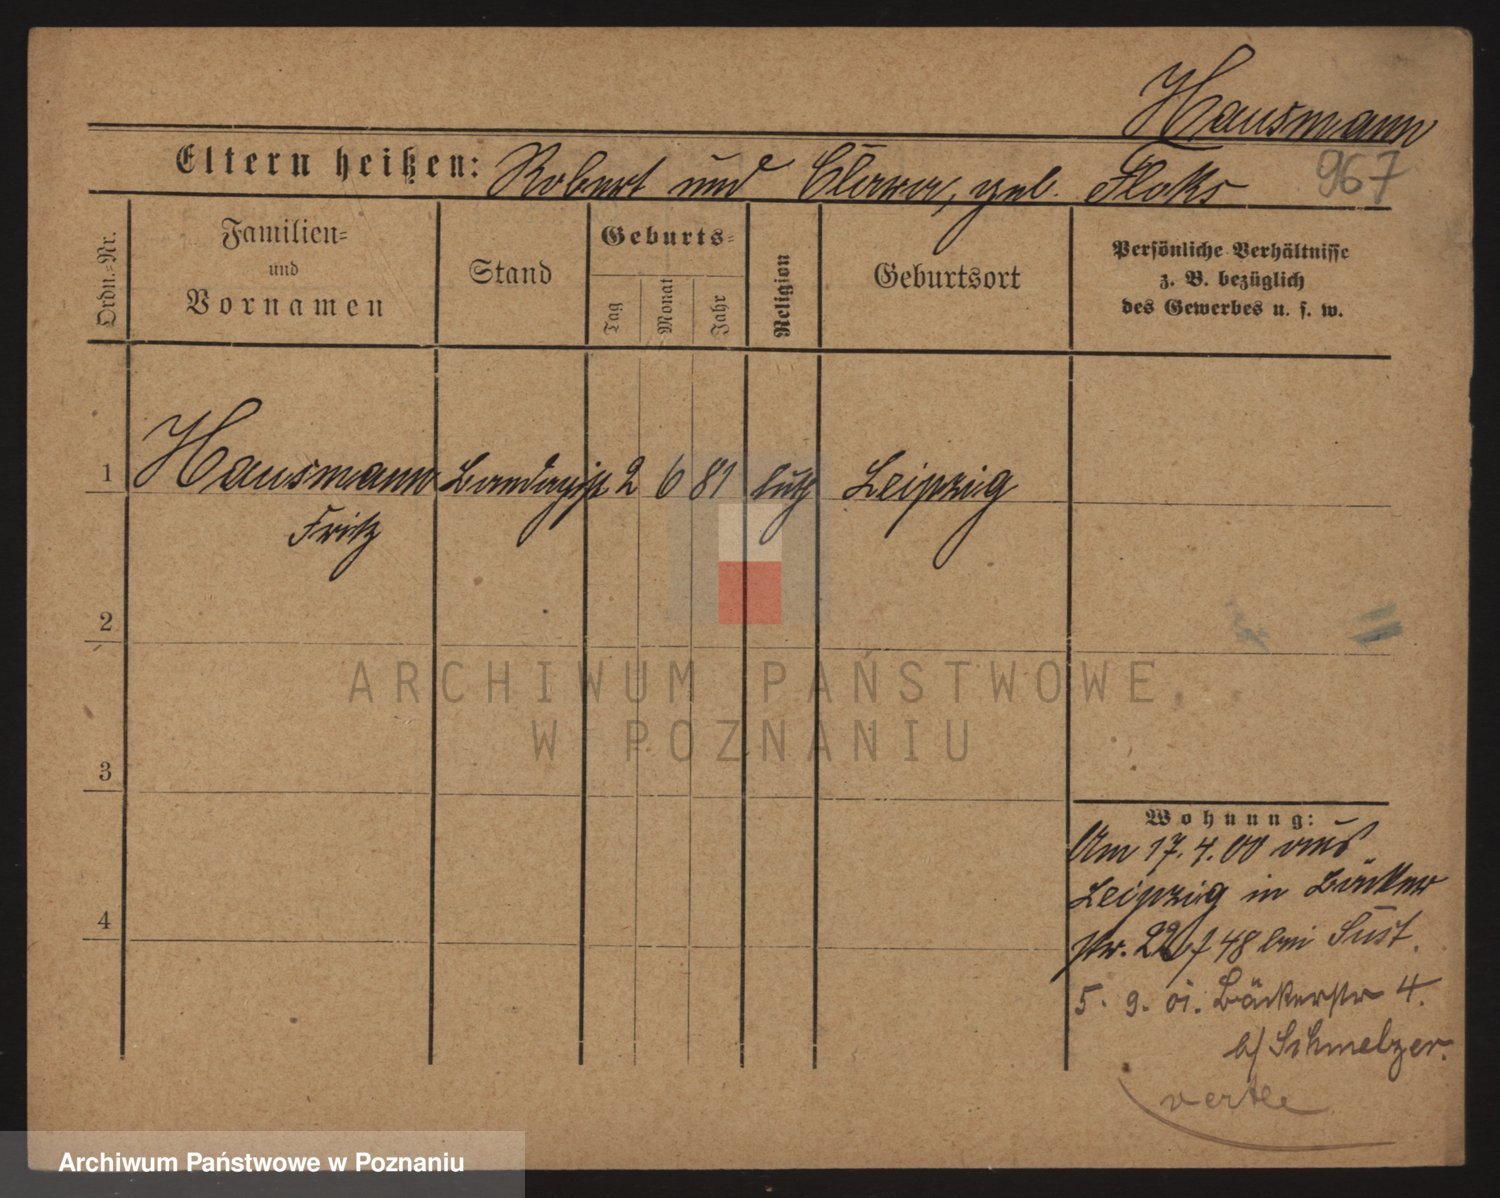 Hausmann
967
Eltern heißen: Robert und Clara, geb. Floks
Ordn.=Nr.
Familien=
und
Vornamen
Stand
Geburts=
Tag
Monat
Jahr
Religion
Geburtsort
Persönliche Verhältnisse
z. B. bezüglich
des Gewerbes u. s. w.
1 Hausmann Bandagist 2 6 81 luth Leipzig
Fritz
2
3
4
ARCHIWUM PAŃSTWOWE
W POZNANIU
Wohnung:
Am 17.4.00 aus
Leipzig in Bäcker
str. 48 bei Sust.
5. 9. 01. Bäckerstr 4.
b/ Schmelzer.
Archiwum Państwowe w Poznaniu